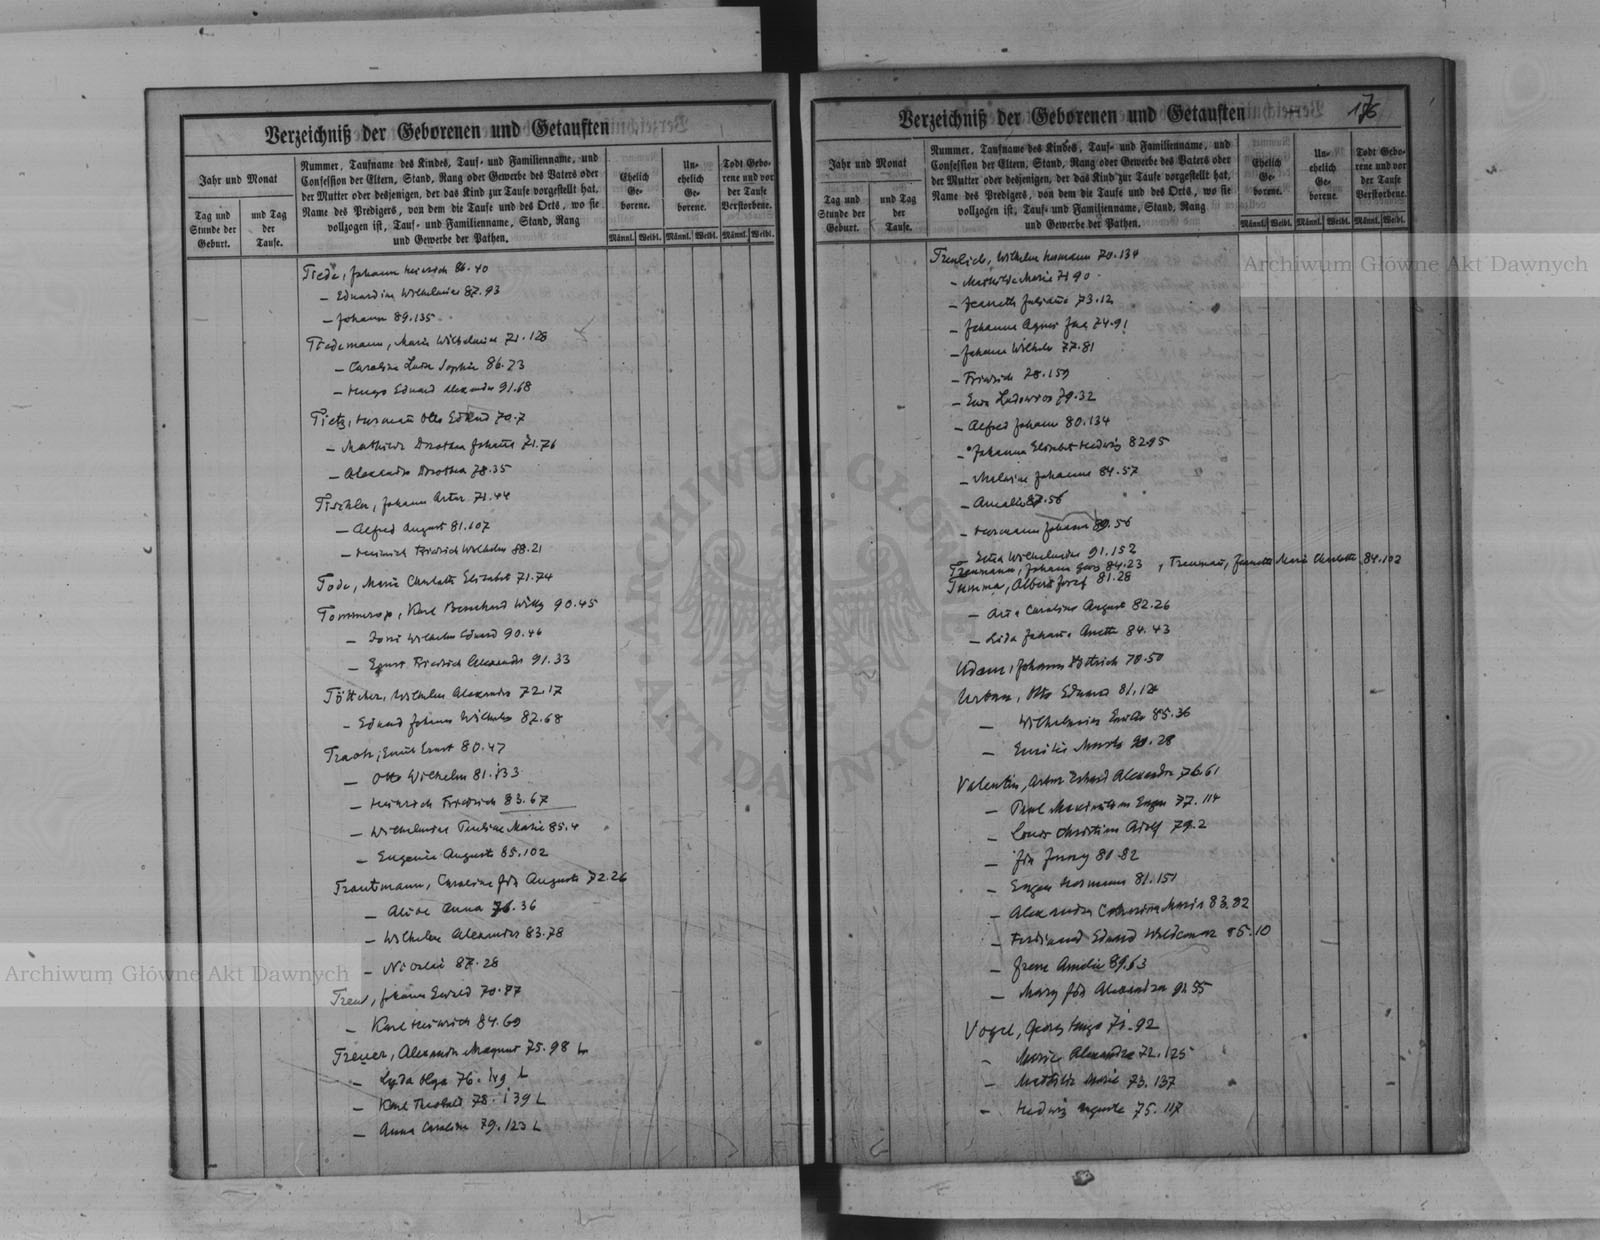 Verzeichniß der Geborenen und Getauften
Jahr und Monat
Tag und Stunde der Geburt.
und Tag der Taufe.
Nummer, Taufname des Kindes, Tauf- und Familienname, und
Confession der Eltern, Stand, Rang oder Gewerbe des Vaters oder
der Mutter oder desjenigen, der das Kind zur Taufe vorgestellt hat,
Name des Predigers, von dem die Taufe und des Orts, wo sie
vollzogen ist, Tauf- und Familienname, Stand, Rang
und Gewerbe der Pathen.
Ehelich Ge- borene.
Un- ehelich Ge- borene.
Todt Gebo- rene und vor der Taufe Verstorbene.
Männl. Weibl. Männl. Weibl. Männl. Weibl.
Tiede, Johann Heinrich 86.40
– Eduardine Wilhelmine 87.93
– Johann 89.135
Tiedemann, Marie Wilhelmine 71.128
– Caroline Luise Sophie 86.23
– Hugo Eduard Alexander 91.68
Tietz, Hermann Otto Eduard 70.7
– Mathilde Dorothea Johanna 71.76
– Alexandra Dorothea 78.35
Tischler, Johann Artur 71.44
– Alfred August 81.107
– Heinrich Friedrich Wilhelm 88.21
Tode, Marie Charlotte Elisabet 71.74
Tommerop, Karl Bernhard Willy 90.45
– Wilhelm Eduard 90.46
– Ernst Friedrich Alexander 91.33
Töttcher, Wilhelm Alexander 72.17
– Eduard Johann Wilhelm 87.68
Track, Emil Ernst 80.47
– Otto Wilhelm 81.133
– Heinrich Friedrich 83.67
– Wilhelmine Pauline Marie 85.4
– Eugenie Auguste 85.102
Trautmann, Caroline Ida Auguste 72.26
– Alice Anna 76.36
– Wilhelm Alexander 83.78
– Nicolai 87.28
Treu, Johann Ewald 70.87
– Karl Heinrich 84.60
Treuer, Alexander Magnus 75.98 L
– Lyda Olga 76. L
– Karl Theobald 78.139 L
– Anna Caroline 79.123 L
Verzeichniß der Geborenen und Getauften
176
Jahr und Monat
Tag und Stunde der Geburt.
und Tag der Taufe.
Nummer, Taufname des Kindes, Tauf- und Familienname, und
Confession der Eltern, Stand, Rang oder Gewerbe des Vaters oder
der Mutter oder desjenigen, der das Kind zur Taufe vorgestellt hat,
Name des Predigers, von dem die Taufe und des Orts, wo sie
vollzogen ist, Tauf- und Familienname, Stand, Rang
und Gewerbe der Pathen.
Ehelich Ge- borene.
Un- ehelich Ge- borene.
Todt Gebo- rene und vor der Taufe Verstorbene.
Männl. Weibl. Männl. Weibl. Männl. Weibl.
Treulich, Wilhelm Hermann 70.134
– Mathilde Marie 71.90
– Jeanette Juliane 73.12
– Johanna Agnes 74.91
– Johann Wilhelm 77.81
– Friedrich 78.159
– Ludowica 79.32
– Alfred Johann 80.134
– Johanna Elisabet Hedwig 82.95
– Melanie Johanna 84.57
– Amalie 87.56
– Hermann Johann 89.56
Wilhelmine 91.152
Treumann, Johann 84.23, Treumann, Jeanette Marie Charlotte 84.102
Tumma, Albert Josef 81.28
– Caroline August 82.26
– Lida Johanna Anette 84.43
Udam, Johann Dietrich 70.50
Urban, Otto Eduard 81.128
– Wilhelmine 85.36
– Emilie Martha 90.28
Valentin, Artur Eduard Alexander 76.61
– Paul Maximilian Eugen 77.114
– Louis Christian Adolf 79.2
– Ida Jenny 80.82
– Eugen Hermann 81.151
– Alexandra Catharina Marie 83.92
– Ferdinand Eduard Woldemar 85.10
– Irene Amelie 89.63
– Mary Ida Alexandra 91.55
Vogel, Georg Hugo 71.92
– Marie Alexandra 72.125
– Mathilde Marie 73.137
– Hedwig Auguste 75.117
Archiwum Główne Akt Dawnych
Archiwum Główne Akt Dawnych
ARCHIWUM GŁÓWNE AKT DAWNYCH